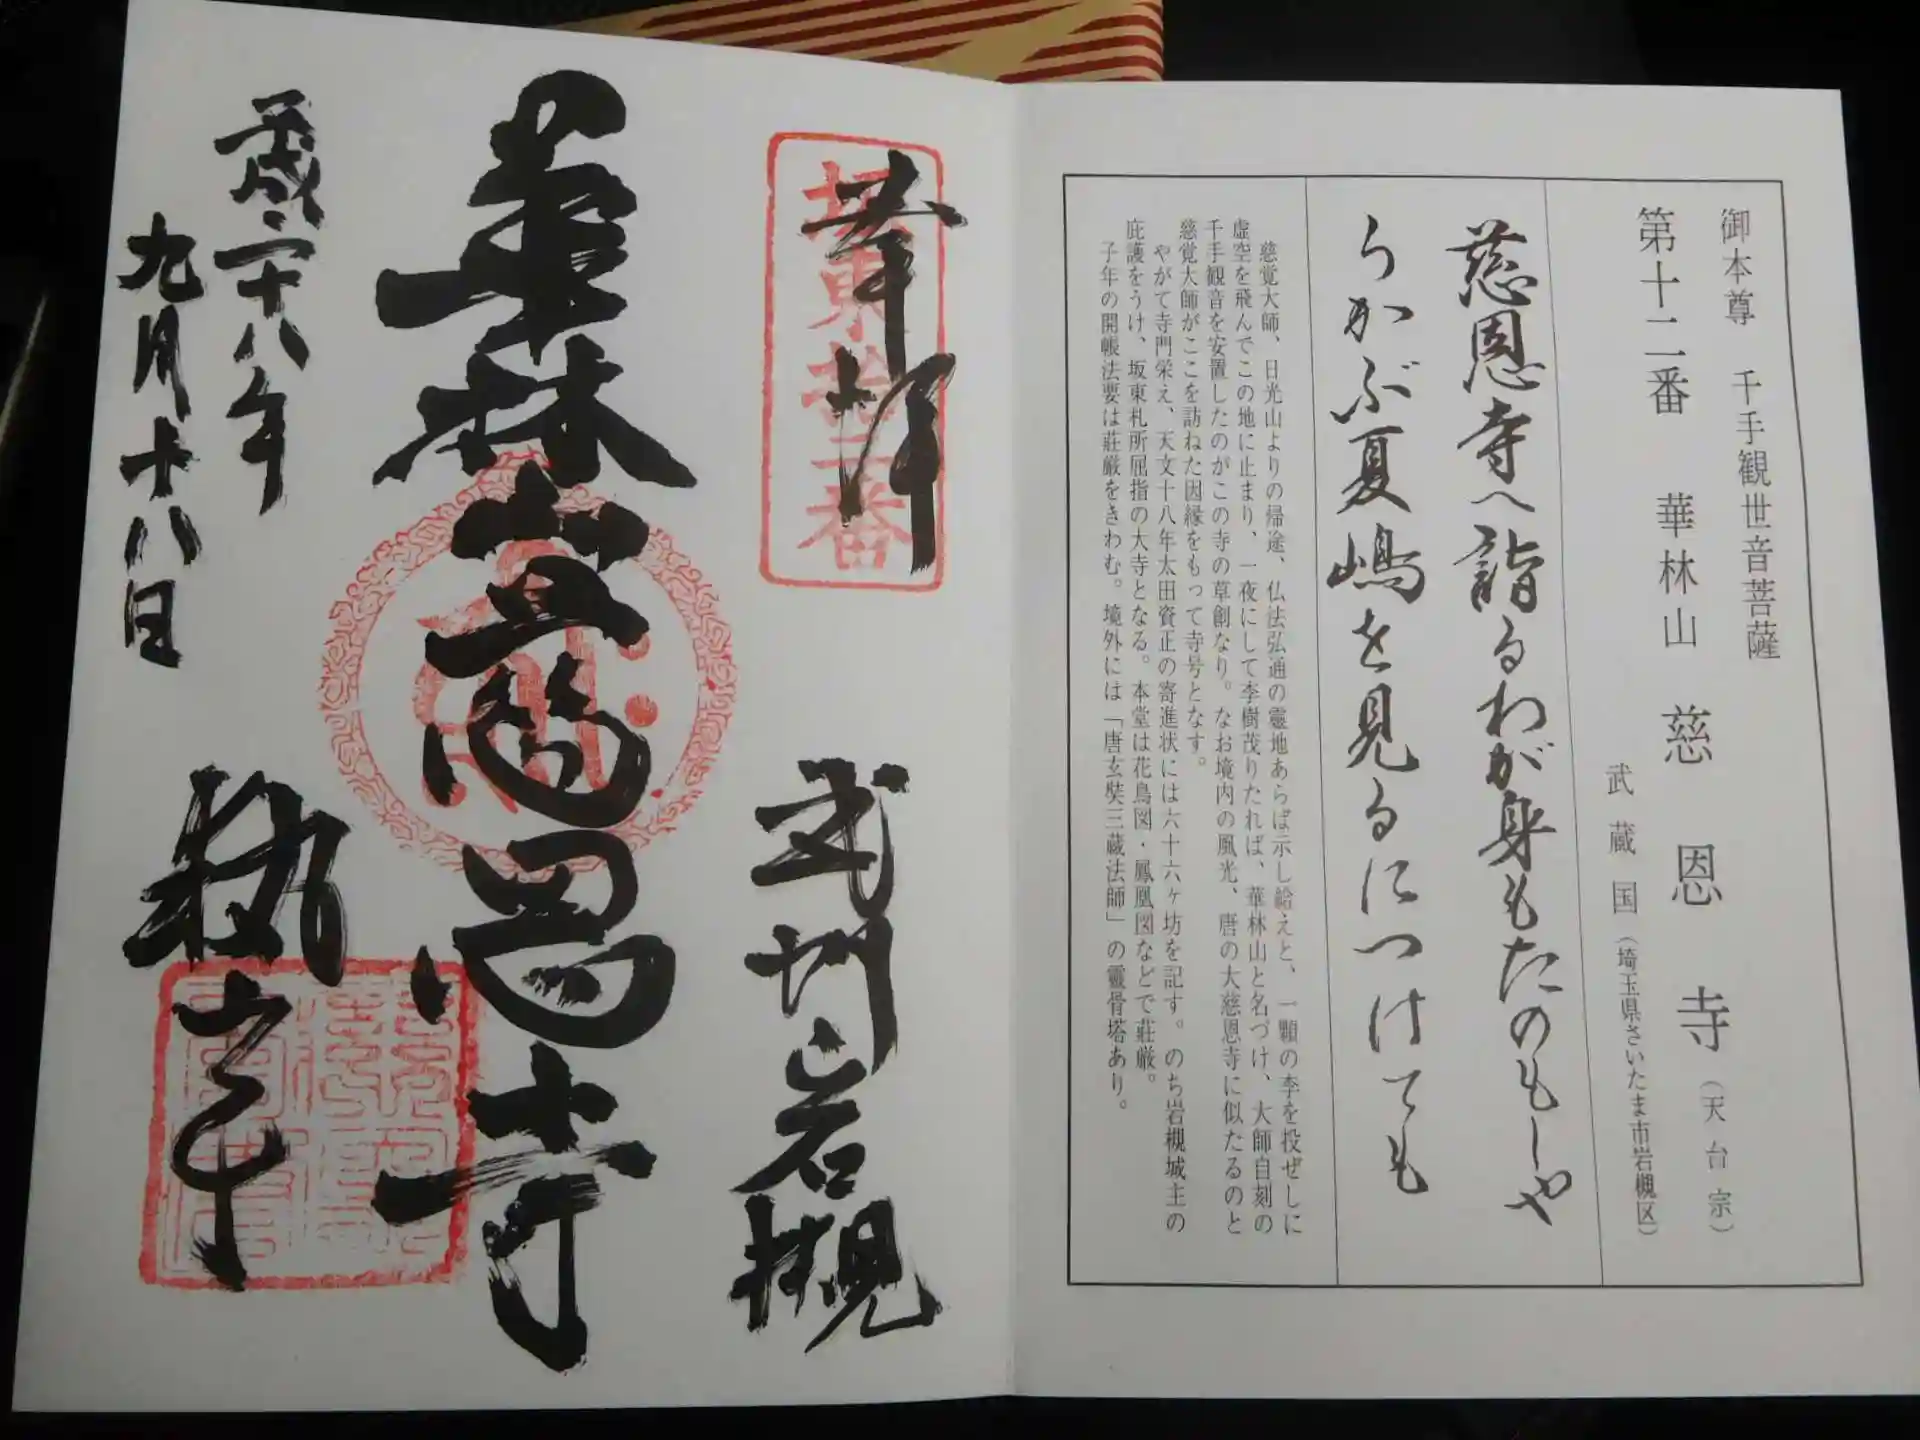 御本尊 千手観世音菩薩
第十二番 華林山 慈恩寺(天台宗)
武蔵国(埼玉県さいたま市岩槻区)
慈恩寺へ詣るわが身もたのもしや
うかぶ夏嶋を見るにつけても
慈覚大師、日光山よりの帰途、仏法弘通の霊地あらば示し給えと、一顆の李を投ぜしに
虚空を飛んでこの地に止まり、一夜にして李樹茂りたれば、華林山と名づけ、大師自刻の
千手観音を安置したのがこの寺の草創なり。なお境内の風光、唐の大慈恩寺に似たるのと
慈覚大師がここを訪ねた因縁をもって寺号となす。
やがて寺門栄え、天文十八年太田資正の寄進状には六十六ヶ坊を記す。のち岩槻城主の
庇護をうけ、坂東札所屈指の大寺となる。本堂は花鳥図・鳳凰図などで荘厳。
子年の開帳法要は荘厳をきわむ。境外には「唐玄奘三蔵法師」の霊骨塔あり。
奉拝
坂東拾二番
武州岩槻
華林山慈恩寺
平成二十八年
九月十八日